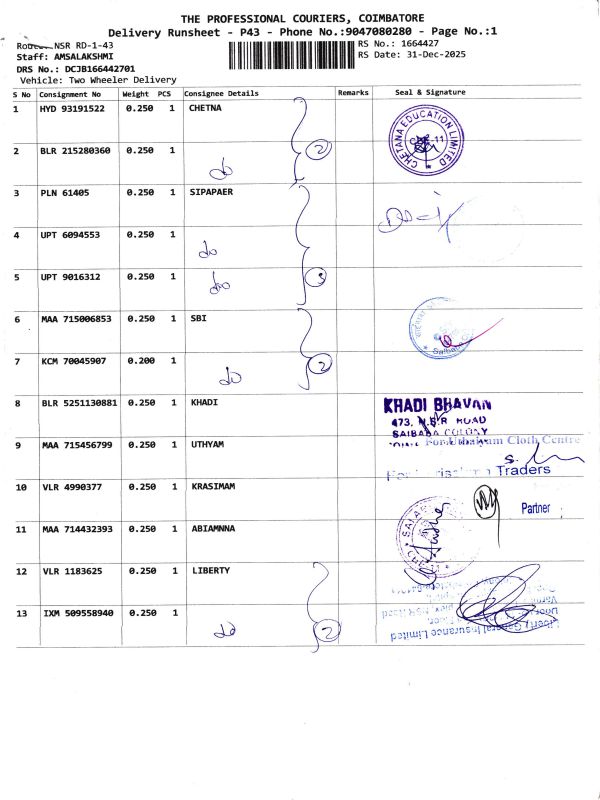 THE PROFESSIONAL COURIERS, COIMBATORE
Delivery Runsheet - P43 - Phone No.:9047080280 - Page No.:1
NSR RD-1-43
RS No.: 1664427
Staff: AMSALAKSHMI
RS Date: 31-Dec-2025
DRS No.: DCJB166442701
Vehicle: Two Wheeler Delivery
S No Consignment No Weight PCS Consignee Details Remarks Seal & Signature
1 HYD 93191522 0.250 1 CHETNA
CHETANA EDUCATION LIMITED
2 BLR 215280360 0.250 1 do 2
3 PLN 61405 0.250 1 SIPAPAER
4 UPT 6094553 0.250 1 do
5 UPT 9016312 0.250 1 do 3
6 MAA 715006853 0.250 1 SBI
7 KCM 70045907 0.200 1 do 2
8 BLR 5251130881 0.250 1 KHADI
KHADI BHAVAN
473, N.S.R ROAD
SAIBABA COLONY
9 MAA 715456799 0.250 1 UTHYAM
For Uthaiyam Cloth Centre
Traders
10 VLR 4990377 0.250 1 KRASIMAM
Partner
11 MAA 714432393 0.250 1 ABIAMNNA
12 VLR 1183625 0.250 1 LIBERTY
13 IXM 509558940 0.250 1 do 2
Liberty General Insurance Limited